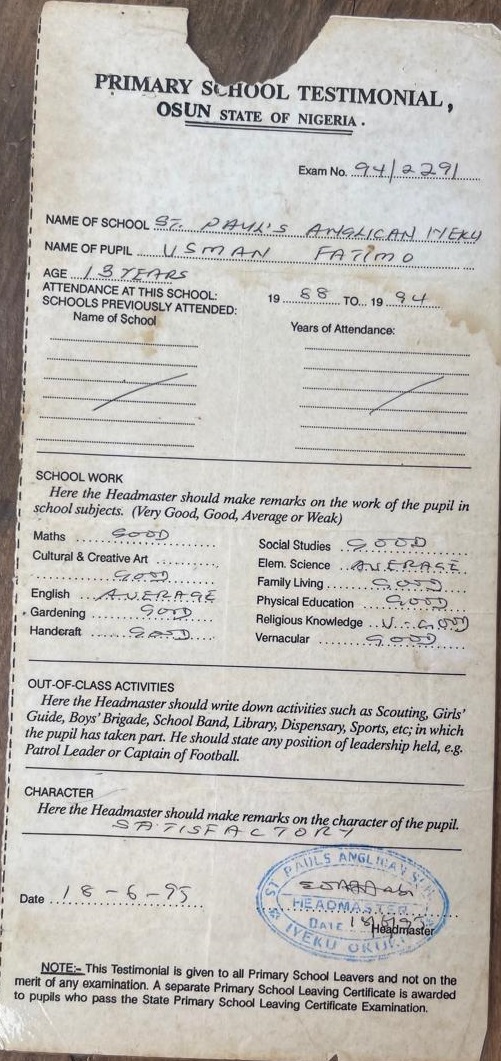 PRIMARY SCHOOL TESTIMONIAL,
OSUN STATE OF NIGERIA.
Exam No. 94/2291
NAME OF SCHOOL ST. PAUL'S ANGLICAN IYEKU
NAME OF PUPIL USMAN FATIMO
AGE 13 YEARS
ATTENDANCE AT THIS SCHOOL: 19 88 TO 19 94
SCHOOLS PREVIOUSLY ATTENDED:
Name of School Years of Attendance:
SCHOOL WORK
Here the Headmaster should make remarks on the work of the pupil in
school subjects. (Very Good, Good, Average or Weak)
Maths GOOD
Cultural & Creative Art
GOOD
English AVERAGE
Gardening GOOD
Handcraft GOOD
Social Studies GOOD
Elem. Science AVERAGE
Family Living GOOD
Physical Education GOOD
Religious Knowledge V. GOOD
Vernacular GOOD
OUT-OF-CLASS ACTIVITIES
Here the Headmaster should write down activities such as Scouting, Girls'
Guide, Boys' Brigade, School Band, Library, Dispensary, Sports, etc; in which
the pupil has taken part. He should state any position of leadership held, e.g.
Patrol Leader or Captain of Football.
CHARACTER
Here the Headmaster should make remarks on the character of the pupil.
SATISFACTORY
Date 18-6-95
ST PAULS ANGLICAN
HEADMASTER
DATE 18/6/95
IYEKU
Headmaster
NOTE:- This Testimonial is given to all Primary School Leavers and not on the
merit of any examination. A separate Primary School Leaving Certificate is awarded
to pupils who pass the State Primary School Leaving Certificate Examination.